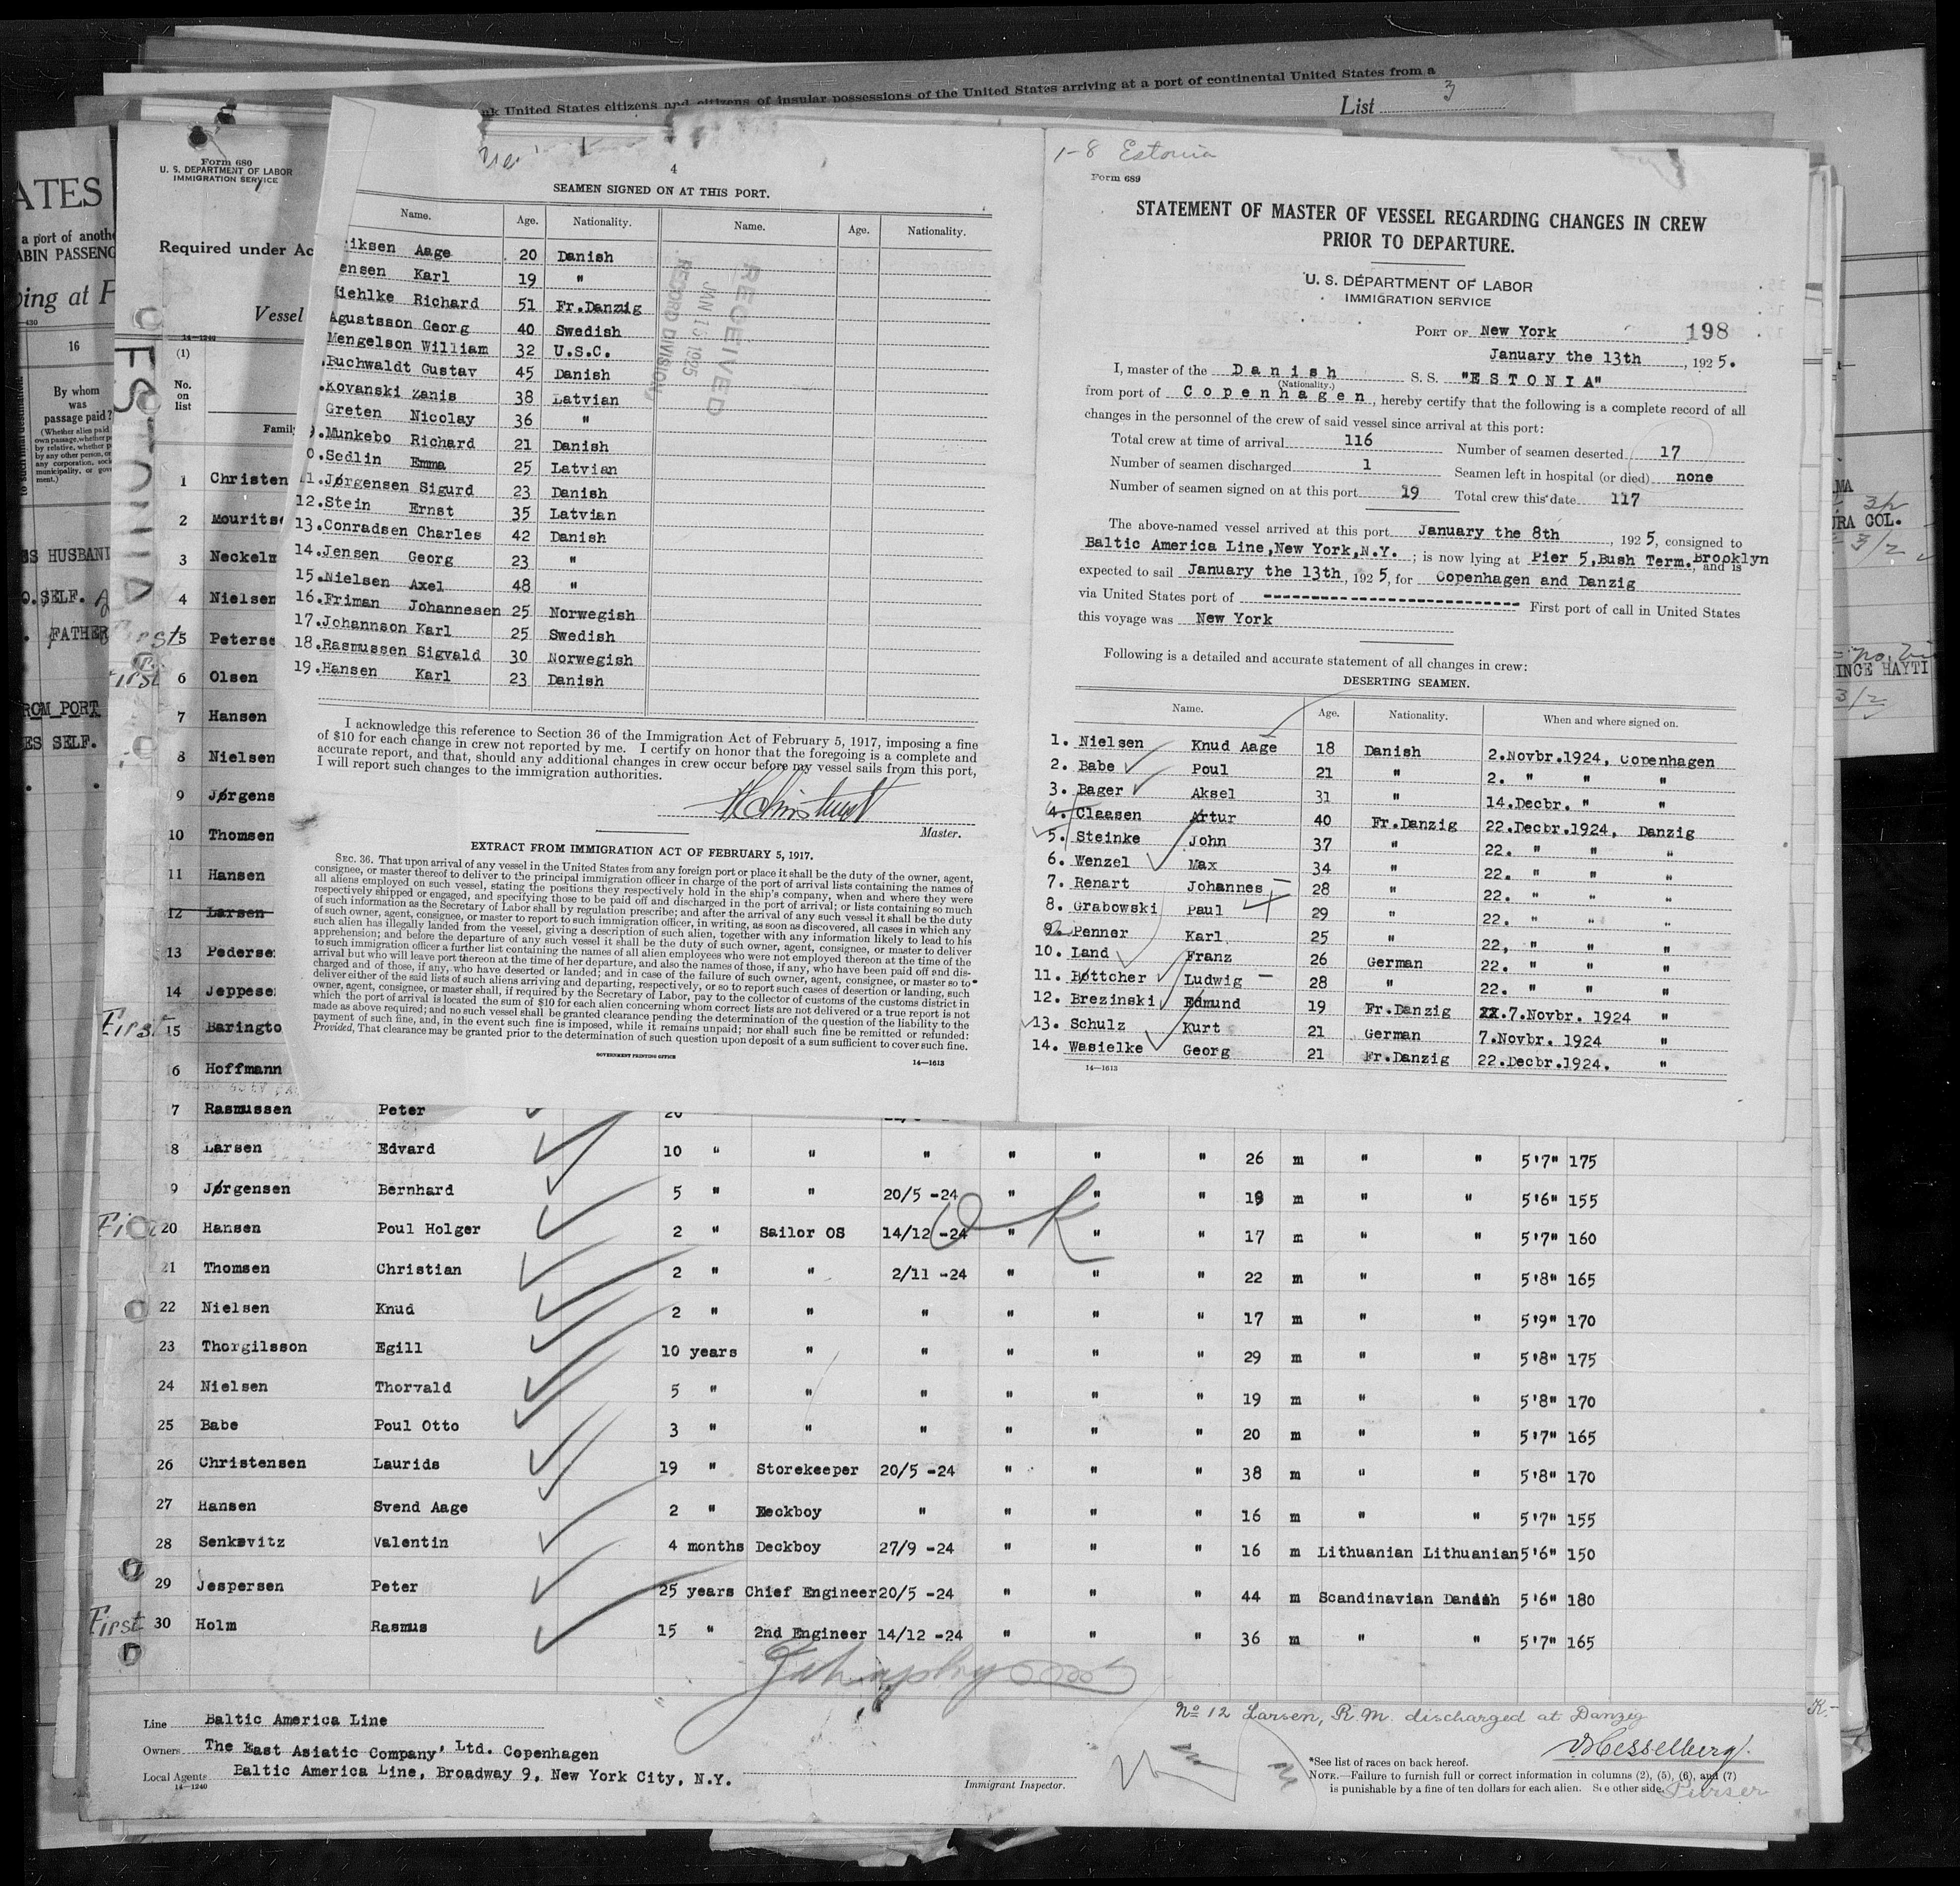 nk United States citizens and citizens of insular possessions of the United States arriving at a port of continental United States from a
List 3
ATES
a port of anothe
ABIN PASSENG
ing at P
16
By whom
was
passage paid?
(Whether alien paid
own passage, whether p
by relative, whether p
by any other person, or
any corporation, soci
municipality, or gov
ment.)
ES HUSBAND
O. SELF.
FATHER
ROM PORT
ES SELF.
Form 680
U. S. DEPARTMENT OF LABOR
IMMIGRATION SERVICE
Required under Ac
Vessel
14—1240
ESTONIA
(1)
No.
on
list
Family
1 Christen
2 Mourits
3 Neckelm
4 Nielsen
First 5 Peterse
First 6 Olsen
7 Hansen
8 Nielsen
9 Jørgens
10 Thomsen
11 Hansen
12 Larsen
13 Pederse
14 Jeppese
First 15 Baringto
6 Hoffmann
4
SEAMEN SIGNED ON AT THIS PORT.
Name. Age. Nationality. Name. Age. Nationality.
iksen Aage 20 Danish
ensen Karl 19 "
iehlke Richard 51 Fr.Danzig
Agustsson Georg 40 Swedish
Mengelson William 32 U.S.C.
.Buchwaldt Gustav 45 Danish
.Kovanski Zanis 38 Latvian
Greten Nicolay 36 "
9.Munkebo Richard 21 Danish
0.Sedlin Emma 25 Latvian
11.Jørgensen Sigurd 23 Danish
12.Stein Ernst 35 Latvian
13.Conradsen Charles 42 Danish
14.Jensen Georg 23 "
15.Nielsen Axel 48 "
16.Friman Johannesen 25 Norwegish
17.Johannson Karl 25 Swedish
18.Rasmussen Sigvald 30 Norwegish
19.Hansen Karl 23 Danish
RECEIVED
JAN 15 1925
RECORD DIVISION
I acknowledge this reference to Section 36 of the Immigration Act of February 5, 1917, imposing a fine
of $10 for each change in crew not reported by me. I certify on honor that the foregoing is a complete and
accurate report, and that, should any additional changes in crew occur before my vessel sails from this port,
I will report such changes to the immigration authorities.
Master.
EXTRACT FROM IMMIGRATION ACT OF FEBRUARY 5, 1917.
SEC. 36. That upon arrival of any vessel in the United States from any foreign port or place it shall be the duty of the owner, agent,
consignee, or master thereof to deliver to the principal immigration officer in charge of the port of arrival lists containing the names of
all aliens employed on such vessel, stating the positions they respectively hold in the ship's company, when and where they were
respectively shipped or engaged, and specifying those to be paid off and discharged in the port of arrival; or lists containing so much
of such information as the Secretary of Labor shall by regulation prescribe; and after the arrival of any such vessel it shall be the duty
of such owner, agent, consignee, or master to report to such immigration officer, in writing, as soon as discovered, all cases in which any
such alien has illegally landed from the vessel, giving a description of such alien, together with any information likely to lead to his
apprehension; and before the departure of any such vessel it shall be the duty of such owner, agent, consignee, or master to deliver
to such immigration officer a further list containing the names of all alien employees who were not employed thereon at the time of the
arrival but who will leave port thereon at the time of her departure, and also the names of those, if any, who have been paid off and dis-
charged and of those, if any, who have deserted or landed; and in case of the failure of such owner, agent, consignee, or master so to
deliver either of the said lists of such aliens arriving and departing, respectively, or so to report such cases of desertion or landing, such
owner, agent, consignee, or master shall, if required by the Secretary of Labor, pay to the collector of customs of the customs district in
which the port of arrival is located the sum of $10 for each alien concerning whom correct lists are not delivered or a true report is not
made as above required; and no such vessel shall be granted clearance pending the determination of the question of the liability to the
payment of such fine, and, in the event such fine is imposed, while it remains unpaid; nor shall such fine be remitted or refunded:
Provided, That clearance may be granted prior to the determination of such question upon deposit of a sum sufficient to cover such fine.
GOVERNMENT PRINTING OFFICE
14—1613
1-8 Estonia
Form 689
STATEMENT OF MASTER OF VESSEL REGARDING CHANGES IN CREW
PRIOR TO DEPARTURE.
U. S. DEPARTMENT OF LABOR
IMMIGRATION SERVICE
PORT OF New York 198
January the 13th, 1925.
I, master of the Danish S.S. "ESTONIA"
(Nationality.)
from port of Copenhagen, hereby certify that the following is a complete record of all
changes in the personnel of the crew of said vessel since arrival at this port:
Total crew at time of arrival 116 Number of seamen deserted 17
Number of seamen discharged 1 Seamen left in hospital (or died) none
Number of seamen signed on at this port 19 Total crew this date 117
The above-named vessel arrived at this port January the 8th, 1925, consigned to
Baltic America Line,New York,N.Y.; is now lying at Pier 5,Bush Term.Brooklyn, and is
expected to sail January the 13th, 1925, for Copenhagen and Danzig
via United States port of ---------- First port of call in United States
this voyage was New York
Following is a detailed and accurate statement of all changes in crew:
DESERTING SEAMEN.
Name. Age. Nationality. When and where signed on.
1. Nielsen Knud Aage 18 Danish 2.Novbr.1924, Copenhagen
2. Babe Poul 21 " 2. " " "
3. Bager Aksel 31 " 14.Decbr. " "
4. Claasen Artur 40 Fr.Danzig 22.Decbr.1924, Danzig
5. Steinke John 37 " 22. " " "
6. Wenzel Max 34 " 22. " " "
7. Renart Johannes 28 " 22. " " "
8. Grabowski Paul 29 " 22. " " "
9. Penner Karl 25 " 22, " " "
10. Land Franz 26 German 22. " " "
11. Bøttcher Ludwig 28 " 22. " " "
12. Brezinski Edmund 19 Fr.Danzig 22.7.Novbr. 1924 "
13. Schulz Kurt 21 German 7.Novbr. 1924 "
14. Wasielke Georg 21 Fr.Danzig 22.Decbr.1924. "
14—1613
MA
URA COL.
3/2
INCE HAYTI
3/2
7 Rasmussen Peter 20
8 Larsen Edvard 10 " " " " " " 26 m " " 5'7" 175
9 Jørgensen Bernhard 5 " " 20/5 -24 " " " 19 m " " 5'6" 155
ok
First 20 Hansen Poul Holger 2 " Sailor OS 14/12 -24 " " " 17 m " " 5'7" 160
21 Thomsen Christian 2 " " 2/11 -24 " " " 22 m " " 5'8" 165
22 Nielsen Knud 2 " " " " " " 17 m " " 5'9" 170
23 Thorgilsson Egill 10 years " " " " " 29 m " " 5'8" 175
24 Nielsen Thorvald 5 " " " " " " 19 m " " 5'8" 170
25 Babe Poul Otto 3 " " " " " " 20 m " " 5'7" 165
26 Christensen Laurids 19 " Storekeeper 20/5 -24 " " " 38 m " " 5'8" 170
27 Hansen Svend Aage 2 " Deckboy " " " " 16 m " " 5'7" 155
28 Senkevitz Valentin 4 months Deckboy 27/9 -24 " " " 16 m Lithuanian Lithuanian 5'6" 150
29 Jespersen Peter 25 years Chief Engineer 20/5 -24 " " " 44 m Scandinavian Danish 5'6" 180
First 30 Holm Rasmus 15 " 2nd Engineer 14/12 -24 " " " 36 m " " 5'7" 165
Line Baltic America Line
Owners The East Asiatic Company, Ltd. Copenhagen
Local Agents Baltic America Line, Broadway 9, New York City, N.Y.
14—1240
Immigrant Inspector.
No 12 Larsen, R.M. discharged at Danzig
Hesselberg.
Purser
*See list of races on back hereof.
NOTE.—Failure to furnish full or correct information in columns (2), (5), (6), and (7)
is punishable by a fine of ten dollars for each alien. See other side.